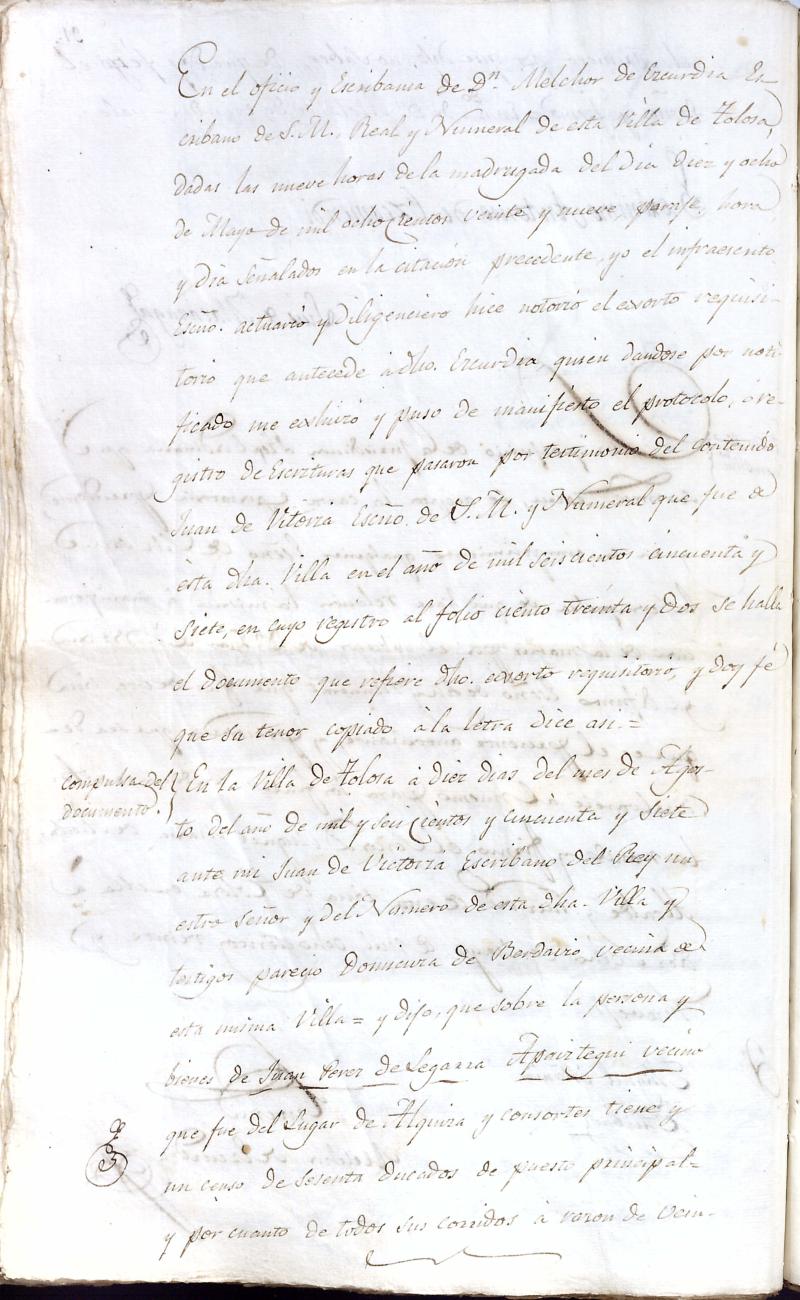 En el oficio y Escribania de Dn. Melchor de Ezcurdia Es-
cribano de S. M. Real y Numeral de esta Villa de Tolosa,
dadas las nueve horas de la madrugada del Dia diez y ocho
de Mayo de mil ocho cientos veinte y nueve paraje, hora
y dia señalados en la citación precedente, yo el infraescrito
Escño. actuario y diligenciero hice notorio el exorto requisi-
torio que antecede á dho. Ezcurdia quien dandose por noti-
ficado me exhivió y puso de manifiesto el protocolo, ó re-
gistro de Escrituras que pasaron por testimonio del contenido
Juan de Vitoria Escño. de S. M. y Numeral que fue de
esta dha. Villa en el año de mil seiscientos cincuenta y
siete, en cuyo registro al folio ciento treinta y dos se halla
el documento que refiere dho. exorto requisitorio, y doy fé
que su tenor copiado á la letra dice asi. =
compulsa del
documento.
En la Villa de Tolosa á diez dias del mes de Agos-
to del año de mil y seis cientos y cincuenta y siete
ante mi Juan de Victoria Escribano del Rey nu
estro Señor y del Numero de esta dha. Villa y
testigos parecio de vecina de
esta misma Villa = y dijo, que sobre la persona y
bienes de Juan Perez de Legarra Apaiztegui vecino
que fue del Lugar de Alquiza y consortes tiene y
un censo de sesenta ducados de puesto principal =
y por cuanto de todos sus corridos á razon de vein-